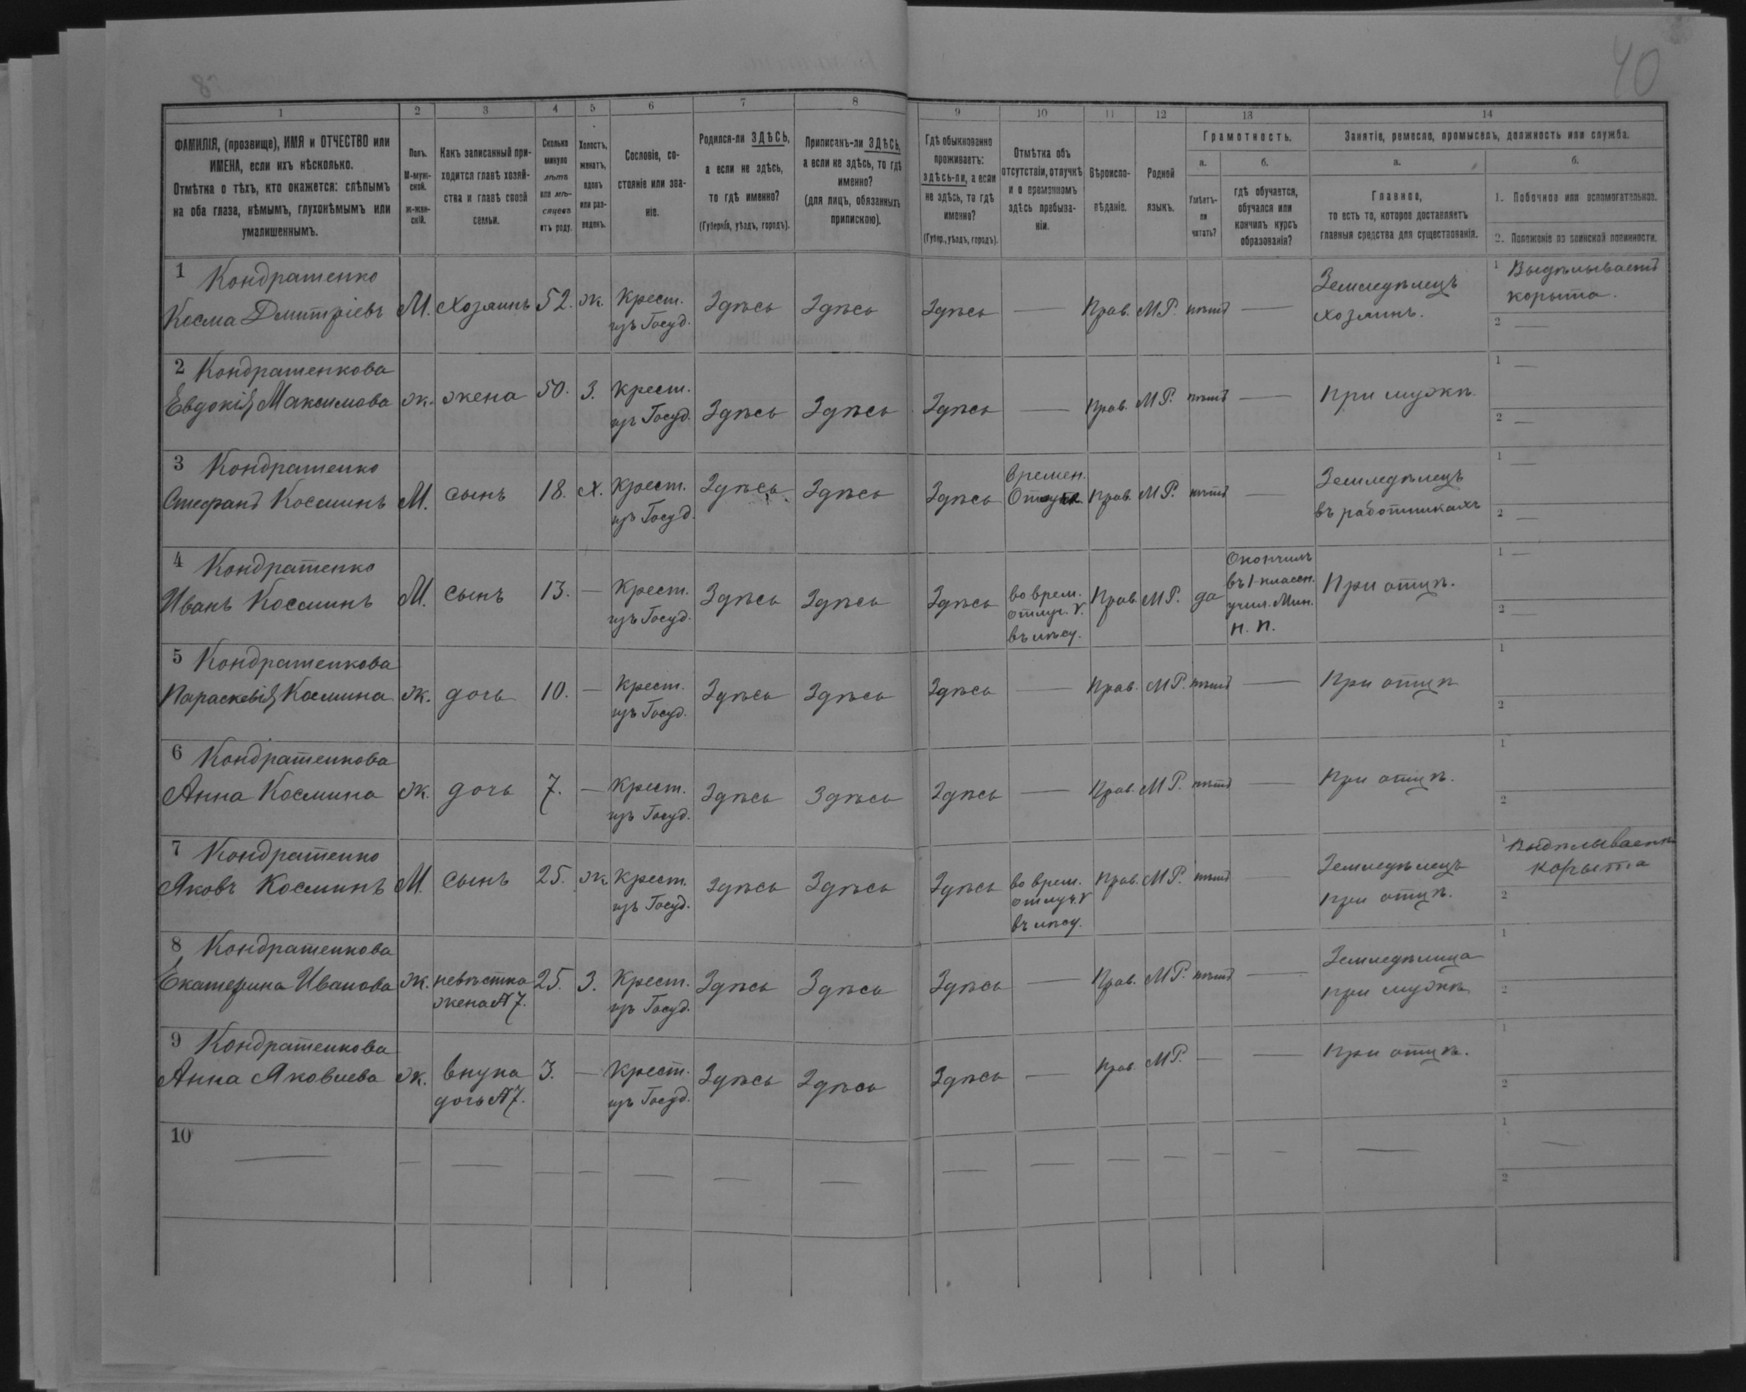 40
8
1 2 3 4 5 6 7 8 9 10 11 12 13 14
ФАМИЛІЯ, (прозвище), ИМЯ и ОТЧЕСТВО или
ИМЕНА, если ихъ нѣсколько.
Отмѣтка о тѣхъ, кто окажется: слѣпымъ
на оба глаза, нѣмымъ, глухонѣмымъ или
умалишеннымъ.
Полъ.
М-муж-
ской.
ж-жен-
скій.
Какъ записанный при-
ходится главѣ хозяй-
ства и главѣ своей
семьи.
Сколько
минуло
лѣтъ
или мѣ-
сяцевъ
отъ роду.
Холостъ,
женатъ,
вдовъ
или раз-
веденъ.
Сословіе, со-
стояніе или зва-
ніе.
Родился-ли ЗДѢСЬ,
а если не здѣсь,
то гдѣ именно?
(Губернія, уѣздъ, городъ).
Приписанъ-ли ЗДѢСЬ,
а если не здѣсь, то гдѣ
именно?
(для лицъ, обязанныхъ
припискою).
Гдѣ обыкновенно
проживаетъ:
здѣсь-ли, а если
не здѣсь, то гдѣ
именно?
(Губер., уѣздъ, городъ).
Отмѣтка объ
отсутствіи, отлучкѣ
и о временномъ
здѣсь пребыва-
ніи.
Вѣроиспо-
вѣданіе.
Родной
языкъ.
Грамотность.
а.
Умѣетъ-
ли
читать?
б.
гдѣ обучается,
обучался или
кончилъ курсъ
образованія?
Занятіе, ремесло, промыселъ, должность или служба.
а.
Главное,
то есть то, которое доставляетъ
главныя средства для существованія.
б.
1. Побочное или вспомогательное.
2. Положеніе по воинской повинности.
1 Кондратенко
Косма Дмитріевъ М. хозяинъ 52. ж. Крест.
изъ Госуд. Здѣсь Здѣсь Здѣсь — Прав. М.Р. нѣтъ — Земледѣлецъ
хозяинъ.
1 Выдѣлываетъ
корыта.
2 —
2 Кондратенкова
Евдокія Максимова ж. жена 50. З. Крест.
изъ Госуд. Здѣсь Здѣсь Здѣсь — Прав. М.Р. нѣтъ — При мужѣ
1 —
2 —
3 Кондратенко
Стефанъ Косминъ М. сынъ 18. х. Крест.
изъ Госуд. Здѣсь Здѣсь Здѣсь Времен.
Прав. М.Р. нѣтъ — Земледѣлецъ
въ работникахъ
1 —
2 —
4 Кондратенко
Иванъ Косминъ М. сынъ 13. — Крест.
изъ Госуд. Здѣсь Здѣсь Здѣсь во врем.
отлуч.
въ лѣсу. Прав. М.Р. да Окончилъ
въ 1-классн.
учил. Мин.
Н. П. При отцѣ.
1 —
2 —
5 Кондратенкова
Параскевія Космина ж. дочь 10. — Крест.
изъ Госуд. Здѣсь Здѣсь Здѣсь — Прав. М.Р. нѣтъ — При отцѣ
1
2
6 Кондратенкова
Анна Космина ж. дочь 7. — Крест.
изъ Госуд. Здѣсь Здѣсь Здѣсь — Прав. М.Р. нѣтъ — При отцѣ.
1
2
7 Кондратенко
Яковъ Косминъ М. сынъ 25. ж Крест.
изъ Госуд. Здѣсь Здѣсь Здѣсь во врем.
отлуч.
въ лѣсу. Прав. М.Р. нѣтъ — Земледѣлецъ
при отцѣ.
1 Выдѣлываетъ
корыта
2
8 Кондратенкова
Екатерина Иванова ж. невѣстка
жена №7. 25. З. Крест.
изъ Госуд. Здѣсь Здѣсь Здѣсь — Прав. М.Р. нѣтъ — Земледѣлица
при мужѣ
1
2
9 Кондратенкова
Анна Яковлева ж. внука
дочь №7. 3. — Крест.
изъ Госуд. Здѣсь Здѣсь Здѣсь — Прав. М.Р. — — При отцѣ.
1
2
10 — — — — — — — — — — — — — — —
1 —
2